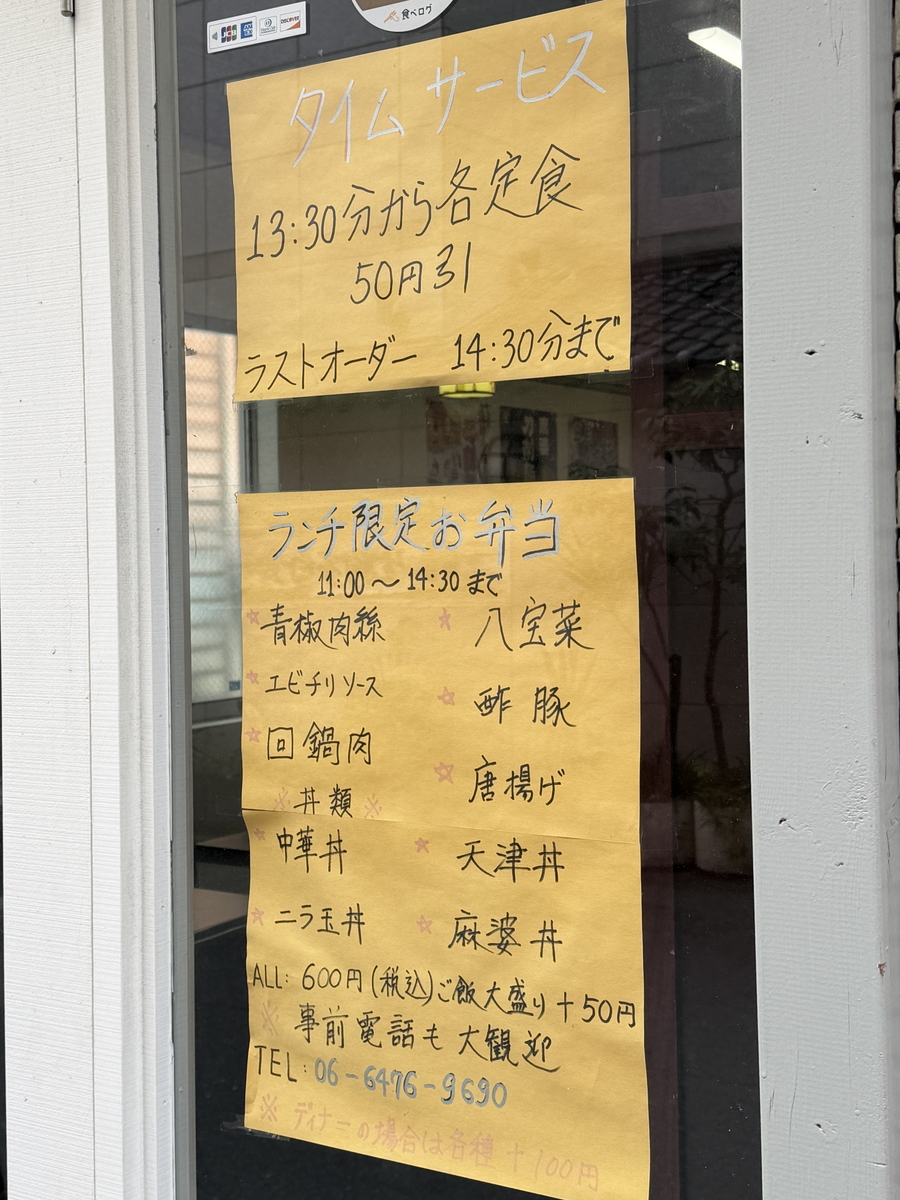 JCB
DISCOVER
食べログ
タイムサービス
13:30分から各定食
50円引
ラストオーダー 14:30分まで
ランチ限定お弁当
11:00～14:30まで
☆青椒肉絲 ☆八宝菜
☆エビチリソース ☆酢豚
☆回鍋肉 ☆唐揚げ
※丼類※
☆中華丼 ☆天津丼
☆ニラ玉丼 ☆麻婆丼
ALL: 600円(税込)ご飯大盛り+50円
※事前電話も大観迎
TEL: 06-6476-9690
※ディナーの場合は各種+100円